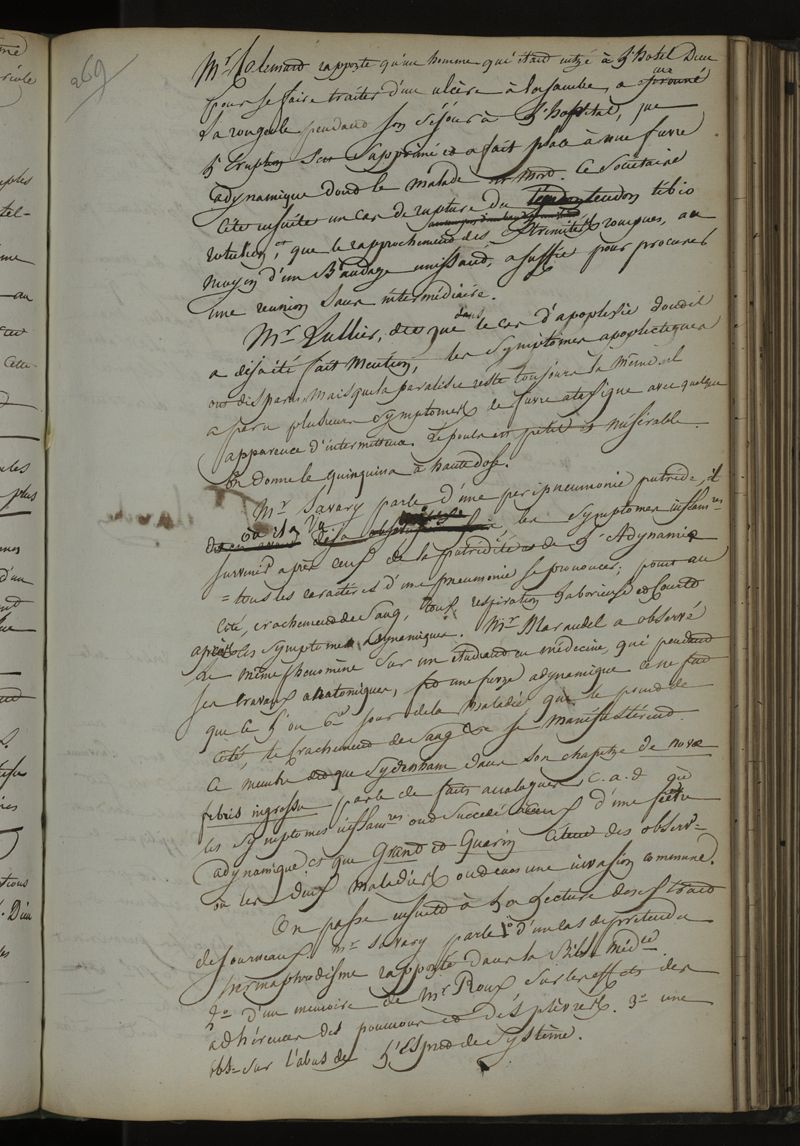 269
Mr rapporte qu'un homme qui étant entré à l'hotel Dieu
pour se faire traiter d'un ulcère à la jambe, a
la rougeole pendant son séjour à l'hopital, que
l'eruption s'est supprimée et a fait place à une fievre
adynamique dont le malade est mort. Ce Sociétaire
cite ensuite un cas de rupture du tendon tibio
rotulien, et que le rapprochement des extrémités rompues, au
moyen d'un Bandage unissant, a suffit pour procurer
une reunion sans intermédiaire.
Mr Lullier, dit que dans le cas d'apoplexie dont il
a déja été fait mention, les symptomes apoplectiques
ont disparu, mais que la paralisie reste toujours la même. il
a paru plusieurs symptomes de fievre ataxique avec quelque
apparence d'intermittence. le pouls est petit et misérable.
on donne le quinquina à haute dose.
Mr Savary parle d'une peripneumonie putride,
où il a vu les symptomes inflam.res
survenir après ceux de la putridité et de l'adynamie
= tous les caractères d'une pneumonie se prononcer; point au
coté, crachement de sang, toux, respiration laborieuse et courte
après les symptomes adynamiques. Mr Marandel a observé
le même phenomène sur un étudiant en médecine, qui pendant
ses travaux anatomiques, prit une fievre adynamique ce ne fut
que le 5 ou 6e jour de la maladie que le point de
coté, le crachement de sang &c se manifestèrent.
Ce membre dit que Sydenham dans son chapitre de novæ
febris ingressu parle de faits analogues, c. a. d que
les symptomes inflam.res ont succédé à ceux d'une fièvre
adynamique, et que Grant et Quarin citent des observ=
où les deux maladies ont eu une invasion commune.
On passe ensuite à la lecture des extraits
de journaux. Mr Savary parle 1o d'un cas de prétendu
hermaphrodisme rapporté dans la Bibl. Méd.le
2o d'un mémoire de Mr Roux sur les effets des
adhérences des poumons et des plèvres. 3o une
obs= sur l'abus de l'Esprit de Système.